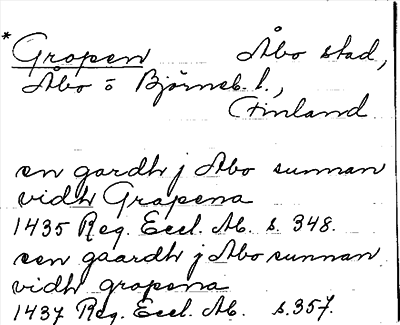 * Gropen Åbo stad,
Åbo o Björneb. l.,
Finland
en gardh j Abo sunnan
vidh Gropena
1435 Reg. Eccl. Ab. s. 348.
een gaardh j Abo sunnan
vidh gropena
1437 Reg. Eccl. Ab. s. 357.